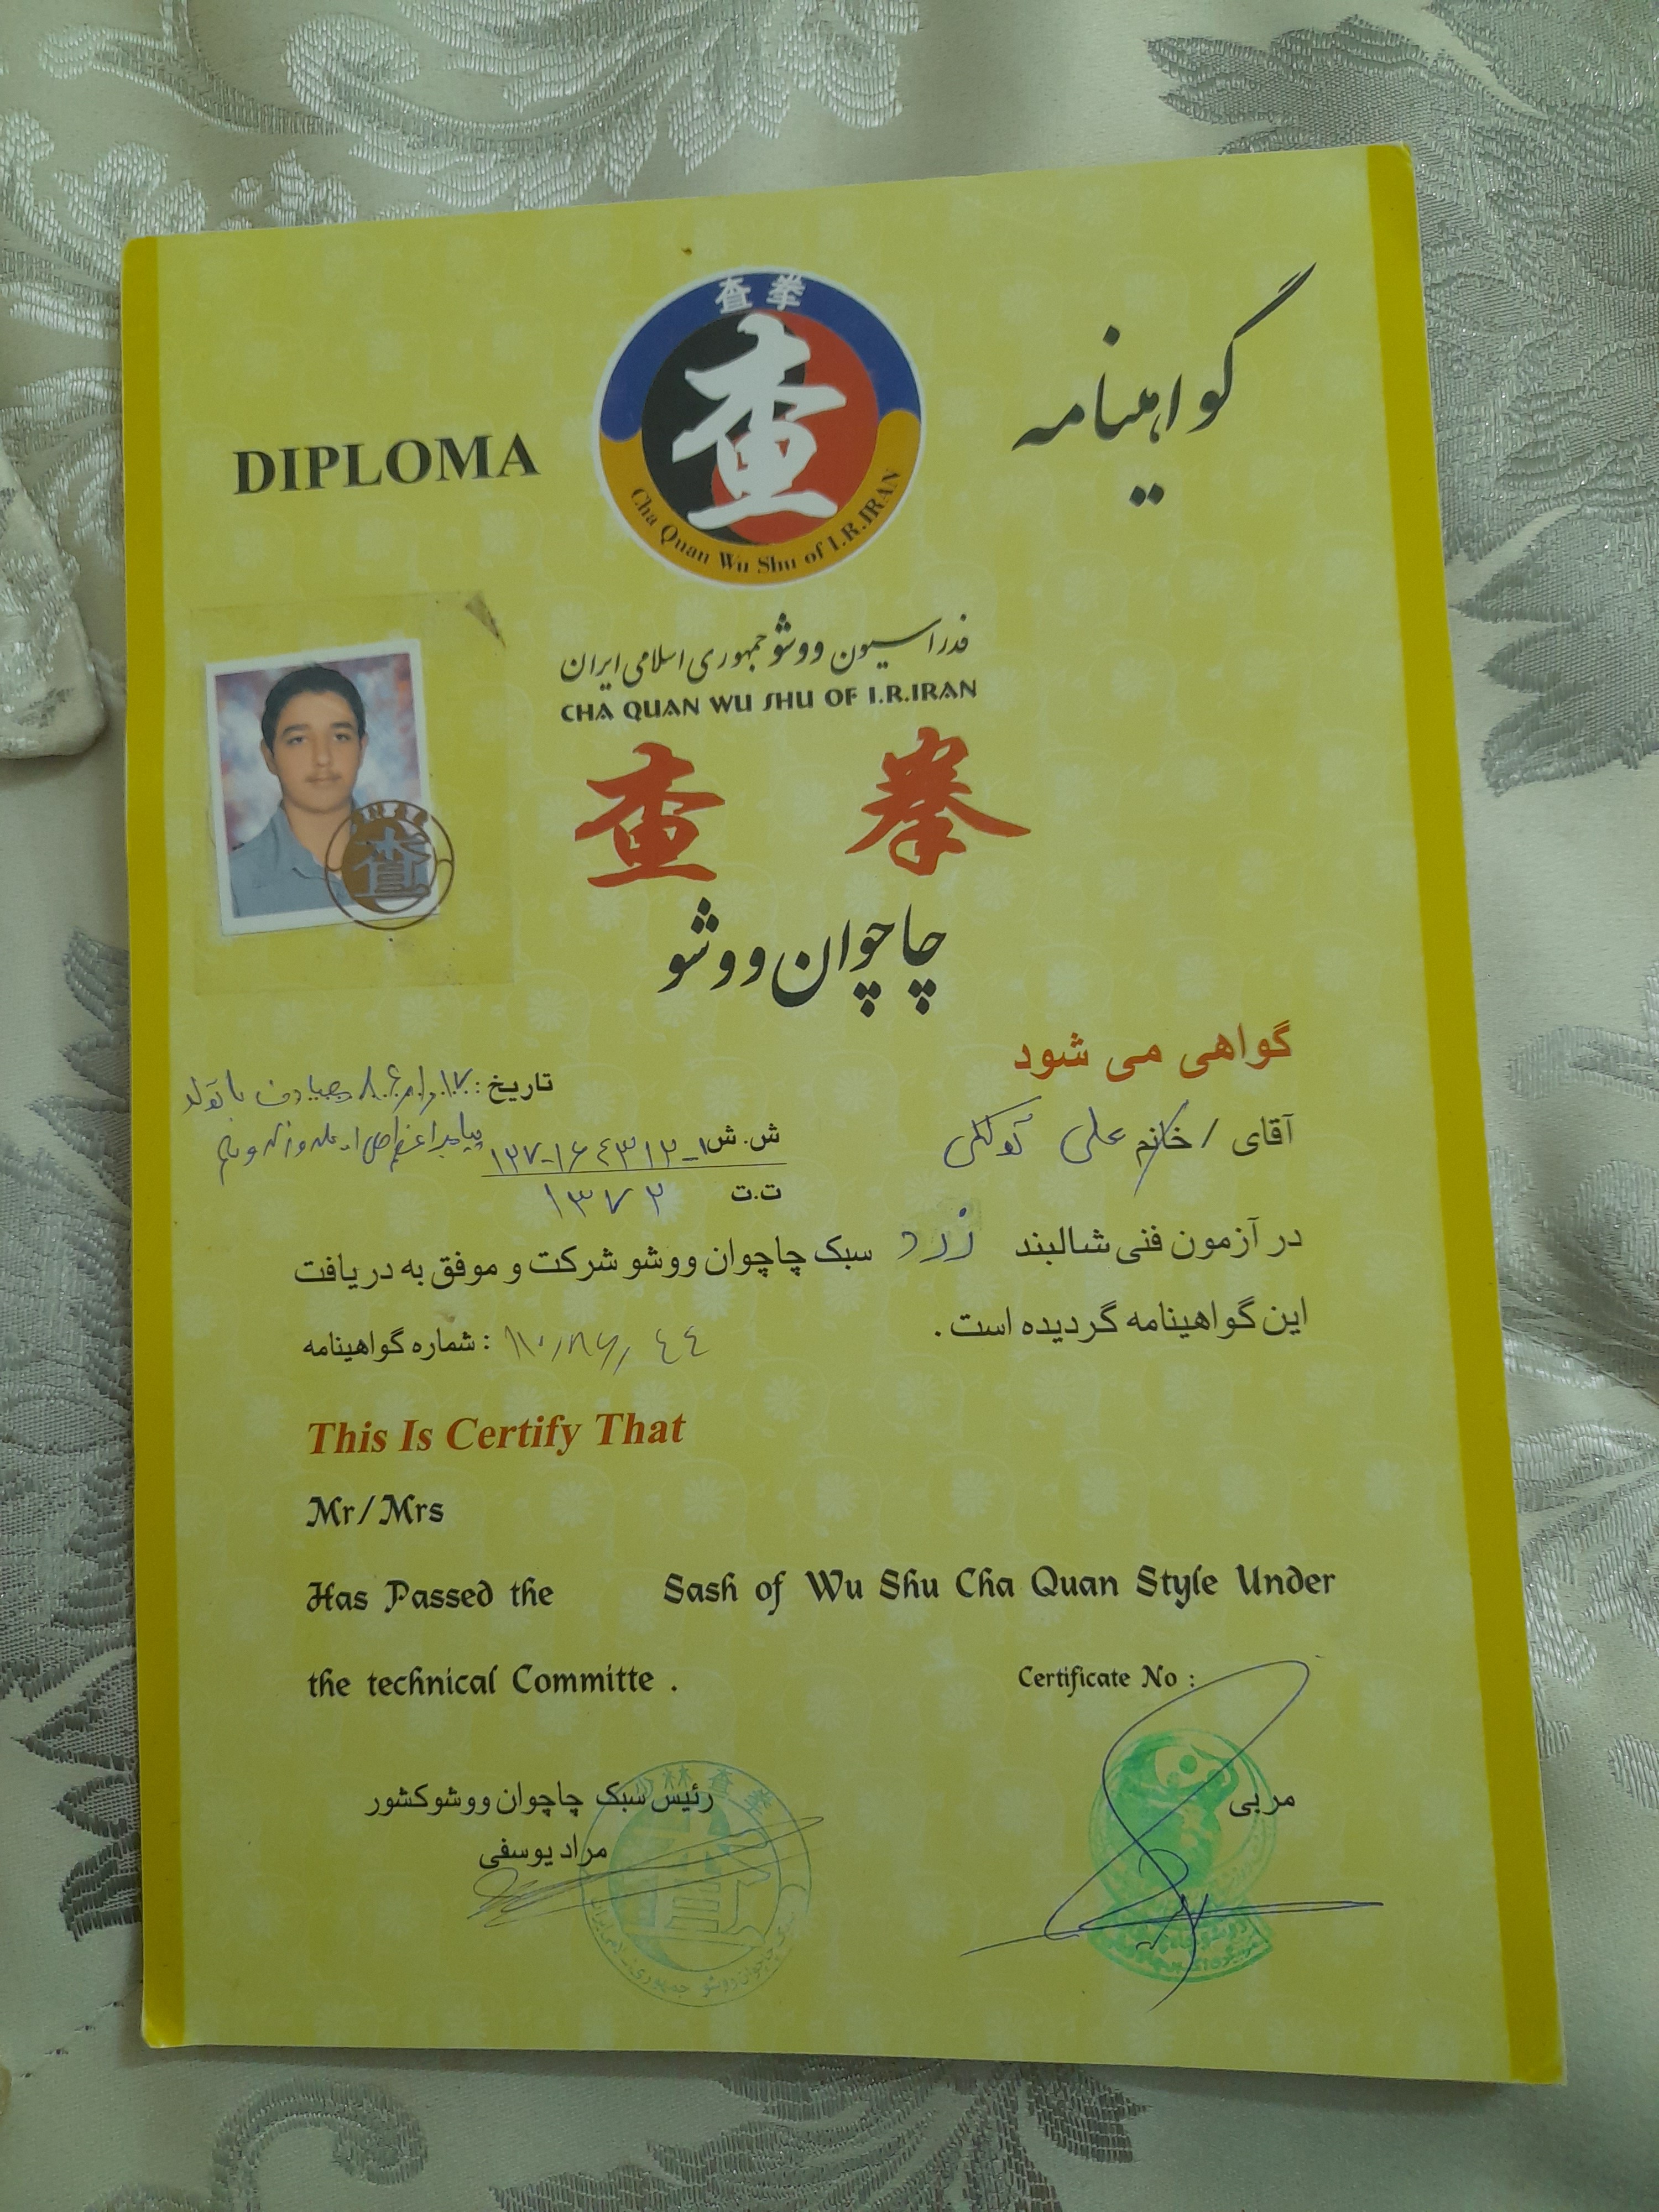 查拳
查
Cha Quan Wu Shu of I.R.IRAN
DIPLOMA
گواهینامه
فدراسیون ووشو جمهوری اسلامی ایران
CHA QUAN WU SHU OF I.R.IRAN
查 拳
چاچوان ووشو
گواهی می شود
تاریخ: مصادف با تولد
آقای / خانم علی توکلی
ش.ش
ت.ت ۱۳۷۲
در آزمون فنی شالبند زرد سبک چاچوان ووشو شرکت و موفق به دریافت
این گواهینامه گردیده است.
شماره گواهینامه :
This Is Certify That
Mr/Mrs
Has Passed the Sash of Wu Shu Cha Quan Style Under
the technical Committe .
Certificate No :
رئیس سبک چاچوان ووشو کشور
مراد یوسفی
مربی